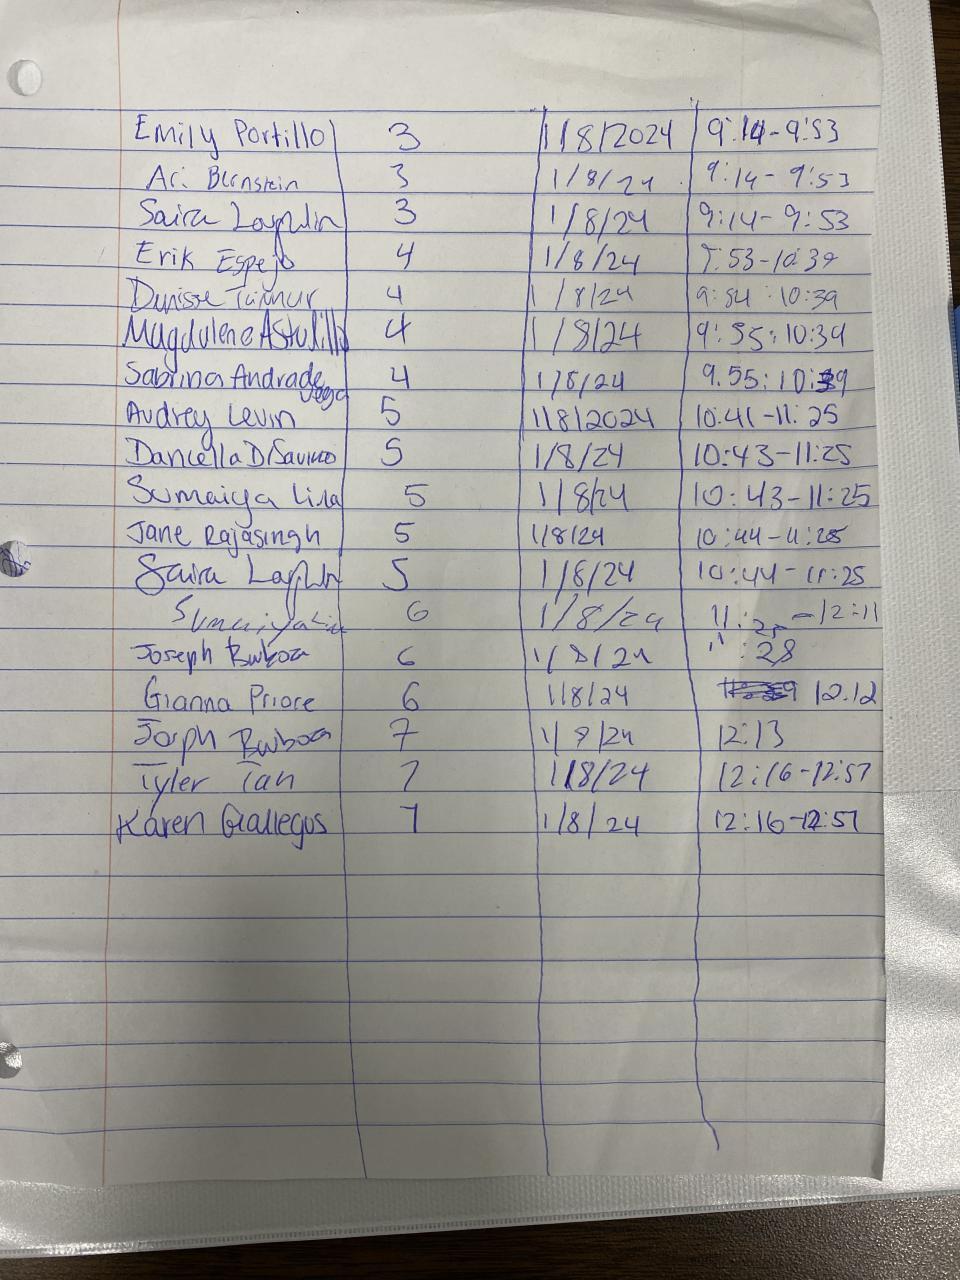 Emily Portillo 3 1/8/2024 9:14-9:53
Ari Bernstein 3 1/8/24 9:14-9:53
Saira 3 1/8/24 9:14-9:53
Erik Espejo 4 1/8/24 9:53-10:39
4 1/8/24 9:54 10:39
Magdalene Astudillo 4 1/8/24 9:55:10:39
Sabrina Andrade Vega 4 1/8/24 9.55:10:39
Audrey Levin 5 1/8/2024 10:41-11:25
Daniella 5 1/8/24 10:43-11:25
Sumaiya 5 1/8/24 10:43-11:25
Jane Rajasingh 5 1/8/24 10:44-11:25
Saira 5 1/8/24 10:44-11:25
Sumaiya 6 1/8/24 11:25-12:11
Joseph 6 1/8/24 11:28
Gianna Priore 6 1/8/24 12.12
Joseph 7 1/8/24 12:13
Tyler Tan 7 1/8/24 12:16-12:57
Karen Gallegos 7 1/8/24 12:16-12:57